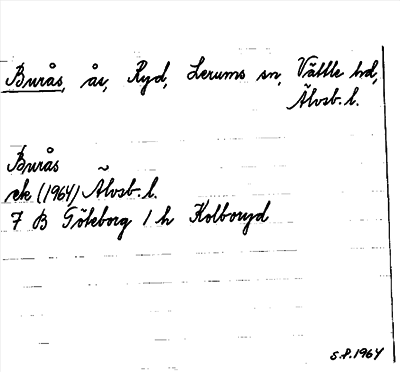 Burås, ås, Ryd, Lerums sn, Vättle hd,
Älvsb. l.
Burås
ek (1964) Älvsb. l.
7 B Göteborg 1 h Kolboryd
S.P. 1964